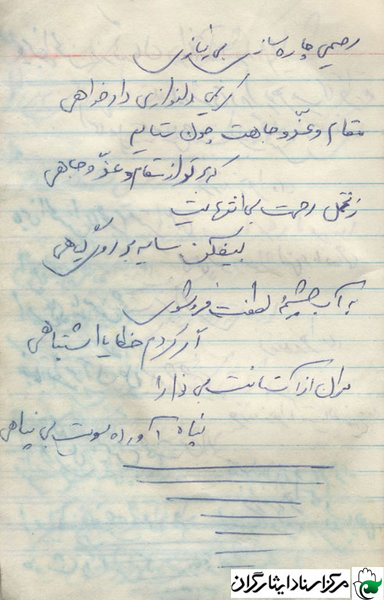 رحیمی چاره سازی بی نیازی
کریمی دلنوازی دادخواهی
مقام و عزّ و جاهت چون ستایم
که برتر از مقام و عزّ و جاهی
ز نخل رحمت بی انتهایت
بیفکن سایه بر روی گیاهی
به آب چشمهٔ لطفت فروشوی
اگر کردم خطا یا اشتباهی
مران از آستانت بی
پناه آورده سویت بی پناهی
مرکز اسناد ایثارگران